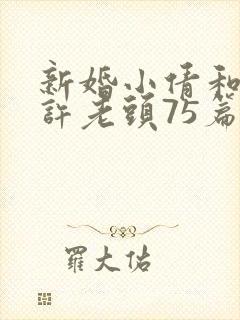 新婚小倩和
許老頭75篇
羅大佑